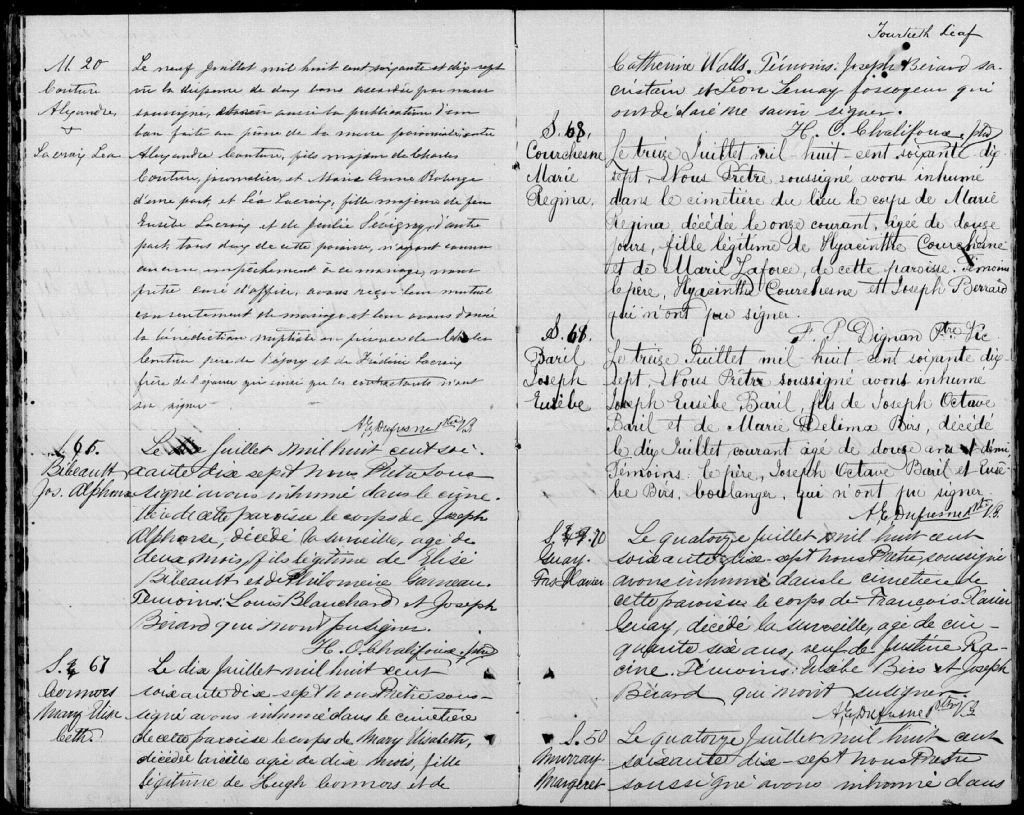 M. 20
Couture
Alexandre
&
Lacroix Lea
Le neuf Juillet mil huit cent soixante et dix sept
vu la dispense de deux bans accordée par nous
soussigné, aussi la publication d'un
ban faite au prône de la messe paroissiale entre
Alexandre Couture, fils majeur de Charles
Couture, journalier, et Marie Anne Roberge
d'une part, et Léa Lacroix, fille majeure de feu
Eusèbe Lacroix et de Julie Sévigny, d'autre
part, tous deux de cette paroisse, n'ayant connu
aucun empêchement à ce mariage, nous
prêtre curé d'office, avons reçu leur mutuel
consentement de mariage et leur avons donné
la bénédiction nuptiale en présence de Charles
Couture père de l'époux et de Frédéric Lacroix
frère de l'épouse qui ainsi que les contractants n'ont
su signer
A. E. Dufresne Ptre V.B.
S 65.
Bibeault
Jos. Alphonse
Le Juillet mil huit cent soi-
xante dix sept nous Prêtre sous
signé avons inhumé dans le cime-
tière de cette paroisse le corps de Joseph
Alphonse, décédé la surveille, agé de
deux mois, fils légitime de Elisé
Bibeault et de Philomène Garneau.
Témoins: Louis Blanchard et Joseph
Berard qui n'ont pu signer.
H. O. Chalifoux, ptre
S. 67
Connors
Mary Elisa
beth.
Le dix Juillet mil huit cent
soixante dix-sept nous Prêtre sous-
signé avons inhumé dans le cimetière
de cette paroisse le corps de Mary Elisabeth,
décédée la veille agée de dix mois, fille
légitime de Hugh Connors et de
Fourtieth Leaf
Catherine Walls. Témoins: Joseph Bérard sa-
cristain et Léon Lemay fossoyeur qui
ont déclaré ne savoir signer.
H. O. Chalifoux, ptre
S. 68.
Courchesne
Marie
Regina.
Le treize Juillet mil-huit-cent soixante dix
sept, Nous Prêtre, soussigné avons inhumé
dans le cimetière du lieu le corps de Marie
Regina décédée le onze courant, agée de douze
jours, fille légitime de Hyacinthe Courchesne
et de Marie Laforce, de cette paroisse. Témoins
le père, Hyacintha Courchesne et Joseph Berrard
qui n'ont pu signer.
F. P. Dignan Ptre Vic
S. 68.
Baril
Joseph
Eusèbe
Le treize Juillet mil-huit-cent soixante dix-
sept, Nous Prêtre soussigné avons inhumé
Joseph Eusèbe Baril, fils de Joseph Octave
Baril et de Marie Delima Birs, décédé
le dix Juillet, courant âgé de douze ans & demi,
Témoins: le père, Joseph Octave Baril et Eusè-
be Birs, boulanger, qui n'ont pu signer
A. E. Dufresne Ptre V.B.
S. 70
Guay.
Frs Xavier
Le quatorze juillet mil huit cent
soixante dix-sept nous Prêtre, soussigné
avons inhumé dans le cimetière de
cette paroisse le corps de François-Xavier
Guay, décédé la surveille, agé de cin-
quante six ans, veuf de Justine Ra-
cine. Témoins: Eusèbe Birs et Joseph
Bérard qui n'ont su signer
A. E. Dufresne Ptre V.B.
S. 50
Murray
Margeret
Le quatorze Juillet mil huit cent
soixante dix-sept nous Prêtre
soussigné avons inhumé dans